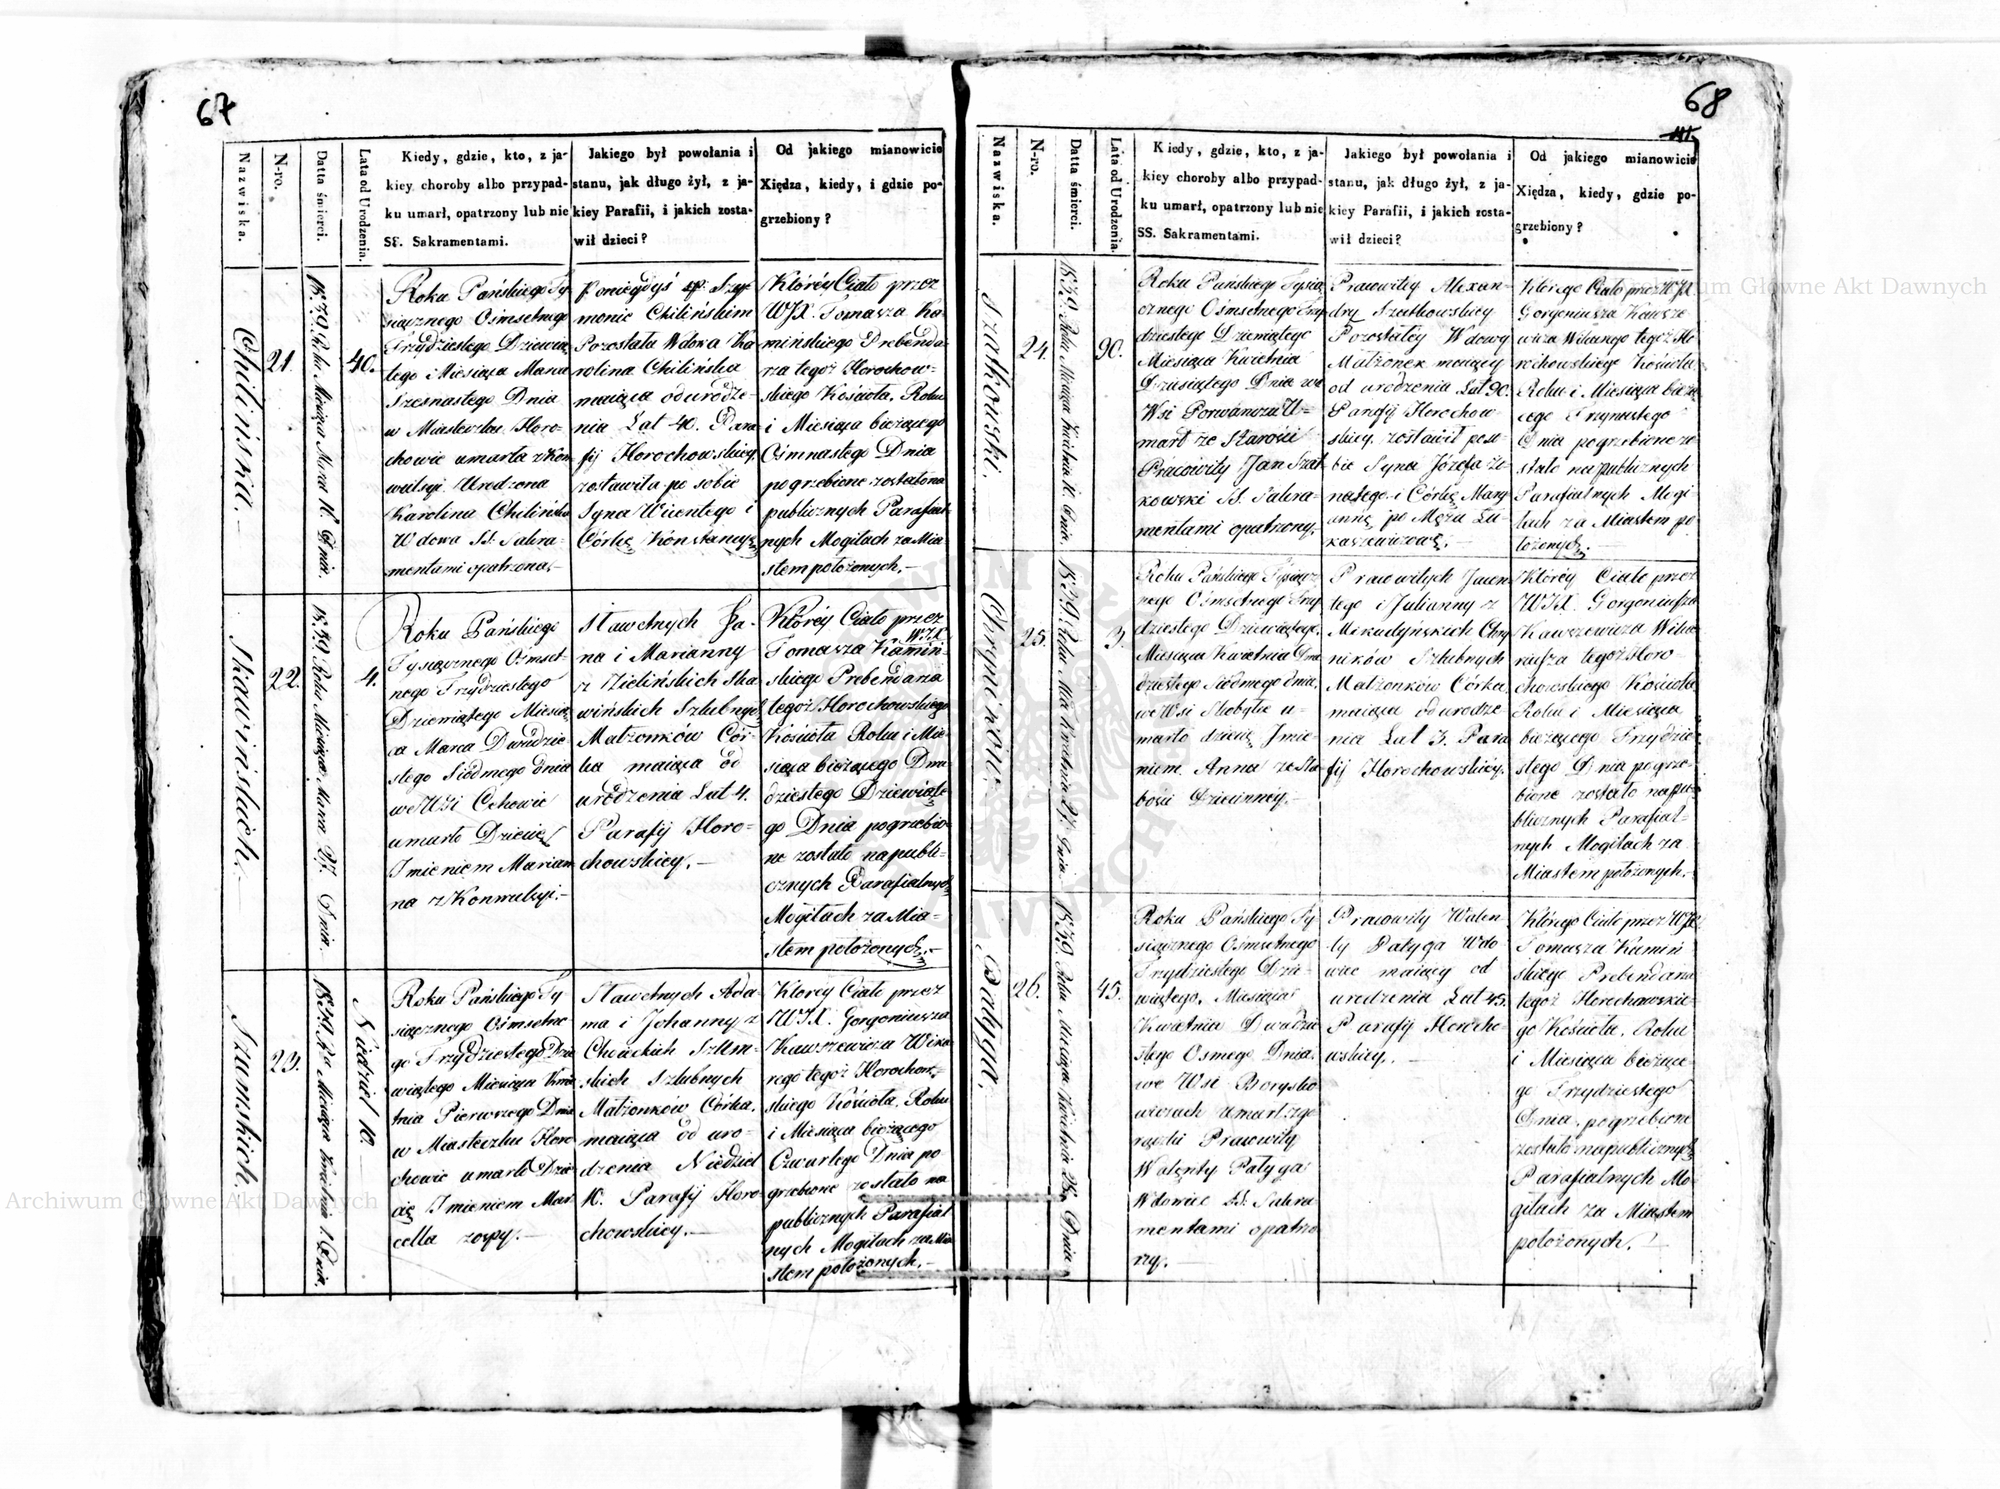 67
Nazwiska.
N-ro.
Datta śmierci.
Lata od Urodzenia.
Kiedy, gdzie, kto, z ja-
kiey choroby albo przypad-
ku umarł, opatrzony lub nie
SS. Sakramentami.
Jakiego był powołania i
stanu, jak długo żył, z ja-
kiey Parafii, i jakich zosta-
wił dzieci?
Od jakiego mianowicie
Xiędza, kiedy, i gdzie po-
grzebiony?
Chilińskia.
21.
1839. Roku Miesiąca Marca 16. Dnia.
40.
Roku Pańskiego Ty-
siącznego Ośmsetnego
Trzydziestego Dziewią-
tego Miesiąca Marca
Szesnastego Dnia
w Miasteczku Horo-
chowie umarła z Kon-
wulsyi Urodzona
Karolina Chilińska
Wdowa SS. Sakra-
mentami opatrzona.
Po niegdyś sp. Szy-
monie Chilińskim
Pozostała Wdowa Ka-
rolina Chilińska
maiąca od urodze-
nia Lat 40. Para-
fij Horochowskiey.
zostawiła po sobie
Syna Wicentego i
Córkę Konstancyą
Któréy Ciało przez
WJX. Tomasza Ka-
mińskiego Prebenda-
rza tegoż Horochow-
skiego Kościoła. Roku
i Miesiąca bieżącego
Ośmnastego Dnia
pogrzebione zostało na
publicznych Parafial-
nych Mogiłach za Mia-
stem położonych.
Skawińskich.
22.
1839. Roku Miesiąca Marca 27. Dnia.
4.
Roku Pańskiego
Tysiącznego Ośmset-
nego Trzydziestego
Dziewiątego Miesią-
ca Marca Dwudzie-
stego Siódmego dnia
we Wsi Cehowie
umarło Dziecię
Imieniem Marian-
na z Konwulsyi.
Sławetnych Ja-
na i Marianny
z Zielińskich Ska-
wińskich Szlubnych
Małżonków Cór-
ka maiąca od
urodzenia Lat 4.
Parafij Horo-
chowskiey.
Któréy Ciało przez
WJX.
Tomasza Kamiń-
skiego Prebendarza
tegoż Horochowskiego
Kościoła Roku i Mie-
siąca bieżącego Dwu-
dziestego Dziewiąte-
go Dnia pogrzebio-
ne zostało na publi-
cznych Parafialnych
Mogiłach za Mia-
stem położonych.
Szumskich.
23.
1839. Rku Miesiąca Kwietnia 1. Dnia.
Niedziel 10.
Roku Pańskiego Ty-
siącznego Ośmsetne-
go Trzydziestego Dzie-
wiątego Miesiąca Kwie-
tnia Pierwszego Dnia
w Miasteczku Horo-
chowie umarło Dzie-
cię Imieniem Mar-
cella zospy.
Sławetnych Ada-
ma i Johanny z
Szum-
skich Szlubnych
Małżonków Córka.
maiąca od uro-
dzenia Niedziel
10. Parafij Horo-
chowskiey.
Ktorey Ciało przez
WJX. Gorgoniusza
Kawszewicza Wika-
rego tegoż Horochow-
skiego Kościoła. Roku
i Miesiąca bieżącego
Czwartego Dnia po
grzebione zostało na
publicznych Parafial-
nych Mogiłach za Mia-
stem położonych.
68
Nazwiska.
N-ro.
Datta śmierci.
Lata od Urodzenia.
Kiedy, gdzie, kto, z ja-
kiey choroby albo przypad-
ku umarł, opatrzony lub nie
SS. Sakramentami.
Jakiego był powołania i
stanu, jak długo żył, z ja-
kiey Parafii, i jakich zosta-
wił dzieci?
Od jakiego mianowicie
Xiędza, kiedy, gdzie po-
grzebiony?
Szatkowski.
24.
1839 Roku Miesiąca Kwietnia 10. Dnia
90.
Roku Pańskiego Tysią-
cznego Ośmsetnego Trzy
dziestego Dziewiątego
Miesiąca Kwietnia
Dziesiątego Dnia we
Wsi Porwańcza U-
marł ze Starości
Pracowity Jan Szat
kowski SS. Sakra-
mentami opatrzony.
Pracowitey Alexan-
dry Szatkowskiey
Pozostałey Wdowy
Małżonek maiący
od urodzenia Lat 90.
Parafij Horochow
skiey. zostawił po so-
bie Syna Józefa
i Córkę Mary
annę po Mężu Łu-
kaszewiczową.
Którego Ciało przez WJX
Gorgoniusza Kawsze
wicza Wikarego tegoż Ho
rochowskiego Kościoła
Roku i Miesiąca bieżą
cego Trzynastego
Dnia pogrzebione zo
stało na publicznych
Parafialnych Mogi-
łach za Miastem po
łożonych.
25.
3.
Roku Pańskiego Tysiącz
nego Ośmsetnego Trzy
dziestego Dziewiątego.
Miesiąca Kwietnia Dwu
dziestego Siódmego dnia.
we Wsi u-
marło dziecię Imie-
niem Anna ze Sła-
bości Dziecinney.
Pracowitych
i Julianny z
Mikudyńskich
Szlubnych
Małżonków Córka
maiąca od urodze
nia Lat 3. Para
fij Horochowskiey.
Któréy Ciało przez
WJX. Gorgoniusza
Kawszewicza Wika-
riusza tegoż Horo-
chowskiego Kościoła
Roku i Miesiąca
bieżącego Trzydzie-
stego Dnia pogrze-
bione zostało na pu-
blicznych Parafial-
nych Mogiłach za
Miastem położonych.
Patyga.
26.
1839. Roku Miesiąca Kwietnia 28. Dnia
45.
Roku Pańskiego Ty-
siącznego Ośmsetnego
Trzydziestego Dzie-
wiątego. Miesiąca
Kwietnia Dwudzie
stego Osmego Dnia.
we Wsi Borysko
wiczach Umarł z go
rączki Pracowity
Walenty Patyga
Wdowiec SS. Sakra
mentami opatrzo
ny.
Pracowity Walen-
ty Patyga Wdo-
wiec maiący od
urodzenia Lat 45.
Parafij Horocho-
wskiey.
Którego Ciało przez WJX
Tomasza Kamiń
skiego Prebendarza
tegoż Horochowskie-
go Kościoła. Roku
i Miesiąca bieżące-
go Trzydziestego
Dnia. pogrzebione
zostało na publicznych
Parafialnych Mo-
giłach za Miastem
położonych.
Archiwum Główne Akt Dawnych